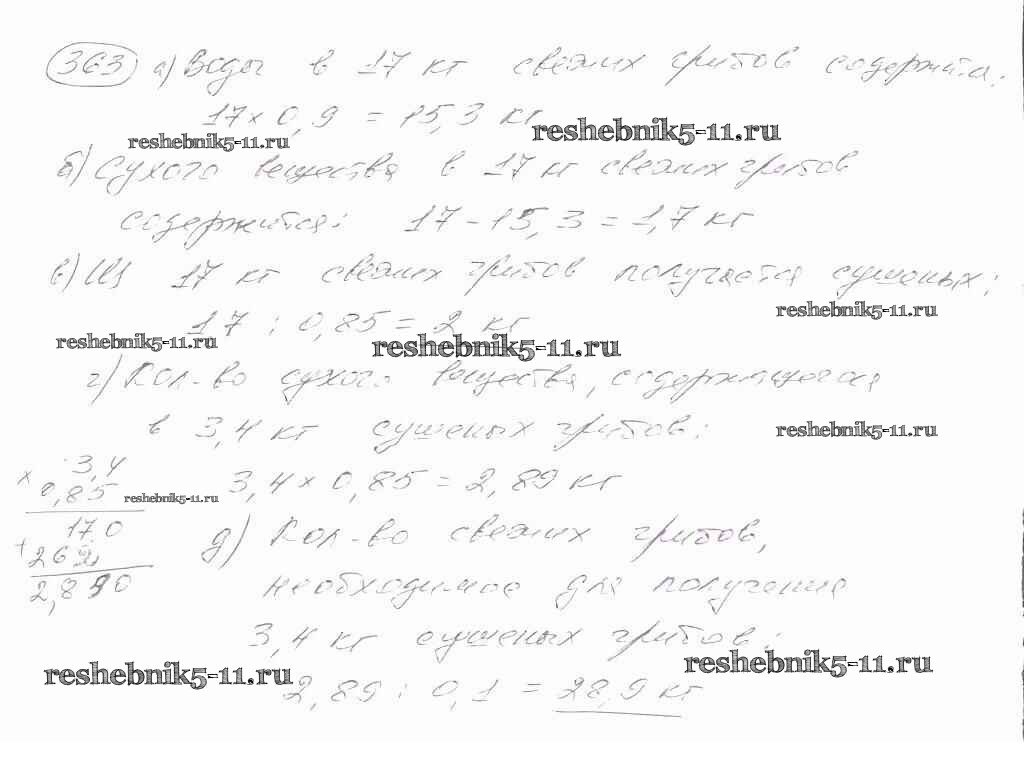 363 а) Воды в 17 кг свежих грибов содержится:
17 × 0,9 = 15,3 кг
reshebnik5-11.ru reshebnik5-11.ru
б) Сухого вещества в 17 кг свежих грибов
содержится: 17 - 15,3 = 1,7 кг
в) Из 17 кг свежих грибов получается сушеных:
reshebnik5-11.ru
1,7 : 0,85 = 2 кг
reshebnik5-11.ru reshebnik5-11.ru
г) Кол-во сухого вещества, содержащегося
в 3,4 кг сушеных грибов:
reshebnik5-11.ru
3,4 × 0,85 = 2,89 кг
× 3,4
0,85
reshebnik5-11.ru
17 0
+ 262
2,890
д) Кол-во свежих грибов,
необходимое для получения
3,4 кг сушеных грибов:
reshebnik5-11.ru reshebnik5-11.ru
2,89 : 0,1 = 28,9 кг